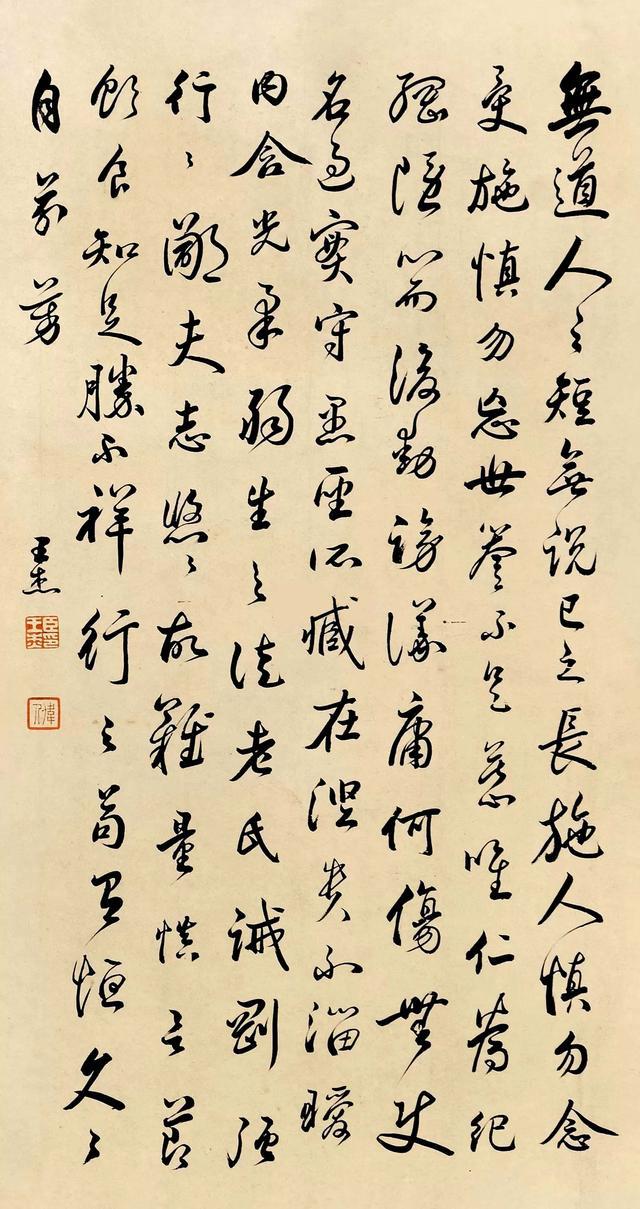 無道人之短無説己之長施人慎勿念
受施慎勿忘世譽不足慕唯仁為紀
綱隱心而後動謗議庸何傷無使
名過實守愚聖所臧在涅貴不淄曖
内含光柔弱生之徒老氏誡剛强
行〻鄙夫志悠〻故難量慎言節
飲食知足勝不祥行之苟有恒久〻
自芬芳
王杰
臣印王杰
偉人